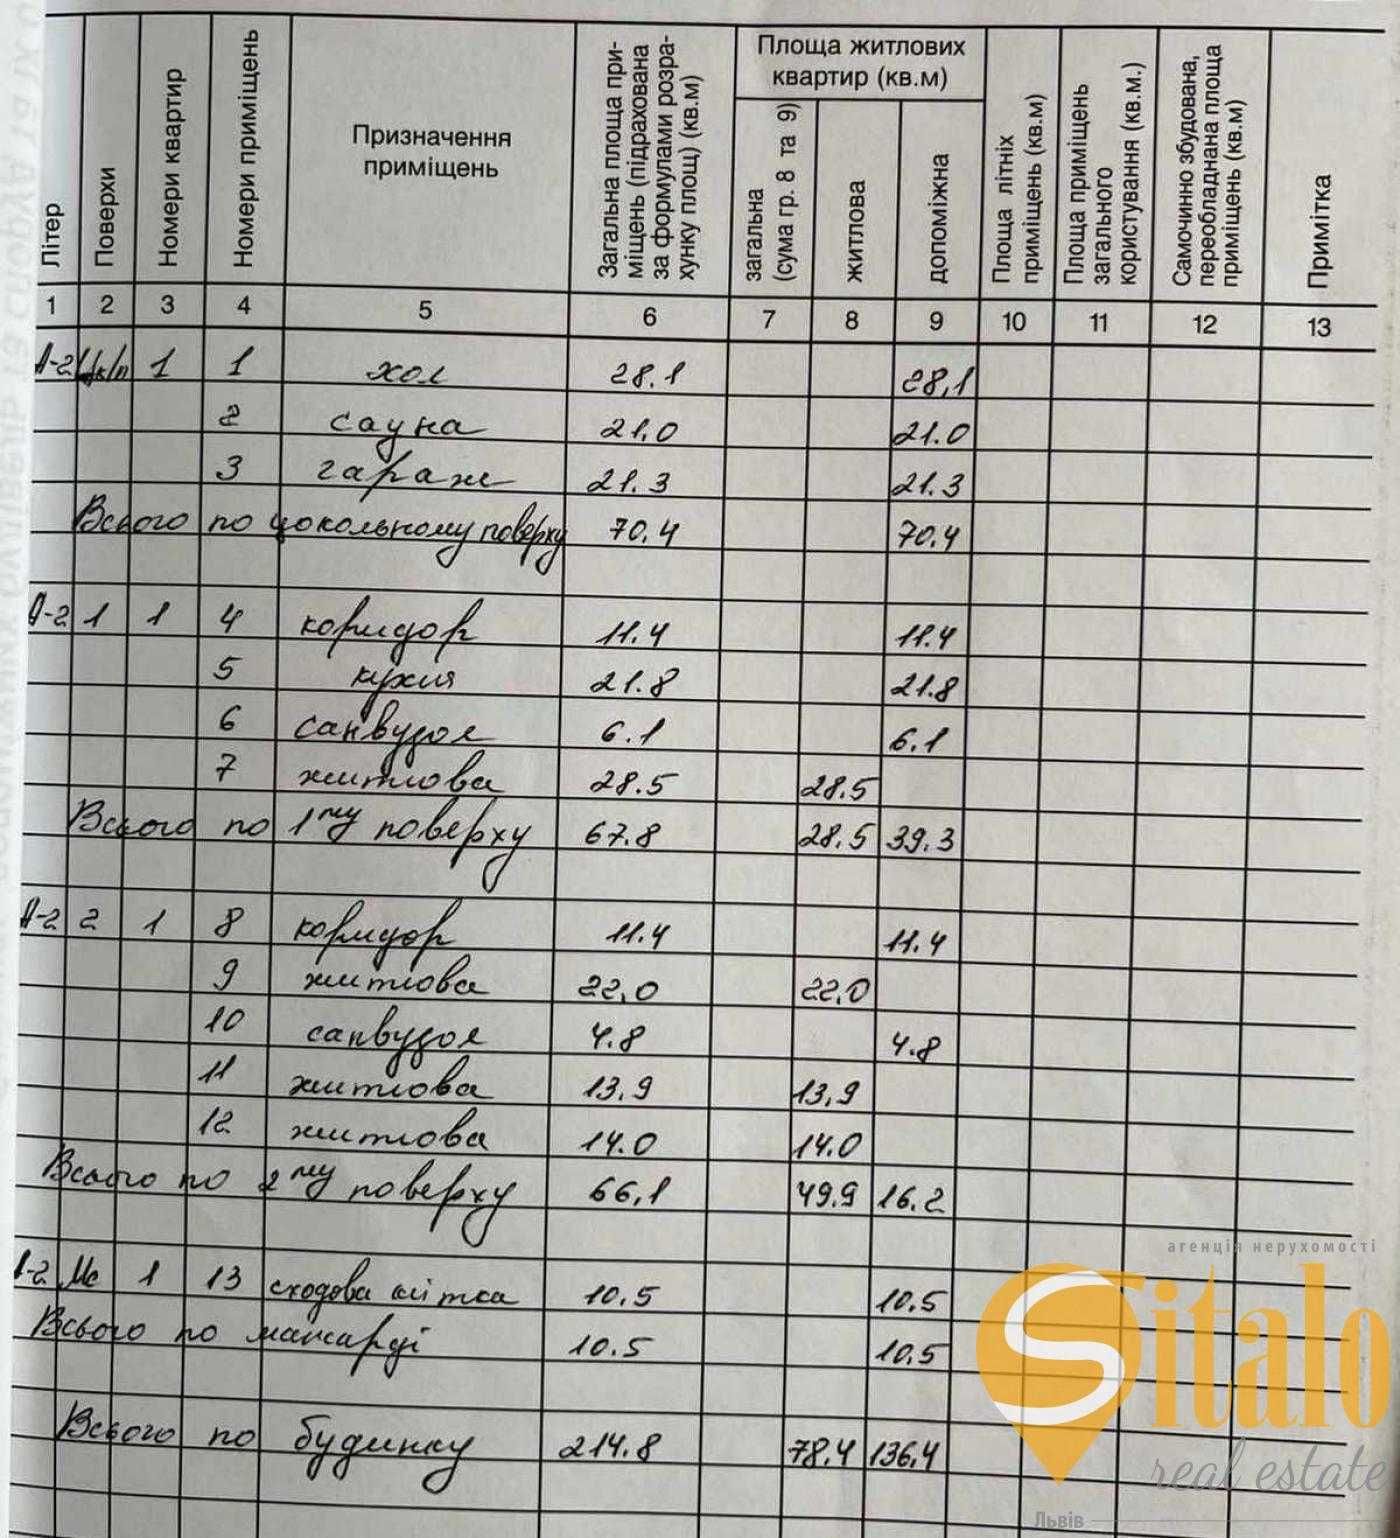 Літер
Поверхи
Номери квартир
Номери приміщень
Призначення приміщень
Загальна площа приміщень (підрахована за формулами розрахунку площ) (кв.м)
Площа житлових квартир (кв.м)
загальна (сума гр. 8 та 9)
житлова
допоміжна
Площа літніх приміщень (кв.м)
Площа приміщень загального користування (кв.м.)
Самочинно збудована, переобладнана площа приміщень (кв.м)
Примітка
1 2 3 4 5 6 7 8 9 10 11 12 13
А-2 1 1 хол 28.1 28,1
2 сауна 21.0 21.0
3 гараж 21.3 21.3
Всього по цокольному поверху 70.4 70.4
А-2 1 1 4 коридор 11.4 11.4
5 кухня 21.8 21.8
6 санвузол 6.1 6.1
7 житлова 28.5 28.5
Всього по 1му поверху 67.8 28.5 39.3
А-2 2 1 8 коридор 11.4 11.4
9 житлова 22,0 22,0
10 санвузол 4.8 4.8
11 житлова 13,9 13,9
12 житлова 14.0 14.0
Всього по 2му поверху 66,1 49.9 16.2
А-2 Мс 1 13 сходова клітка 10.5 10.5
Всього по мансарді 10.5 10.5
Всього по будинку 214.8 78.4 136,4
агенція нерухомості
Sitalo
real estate
Львів